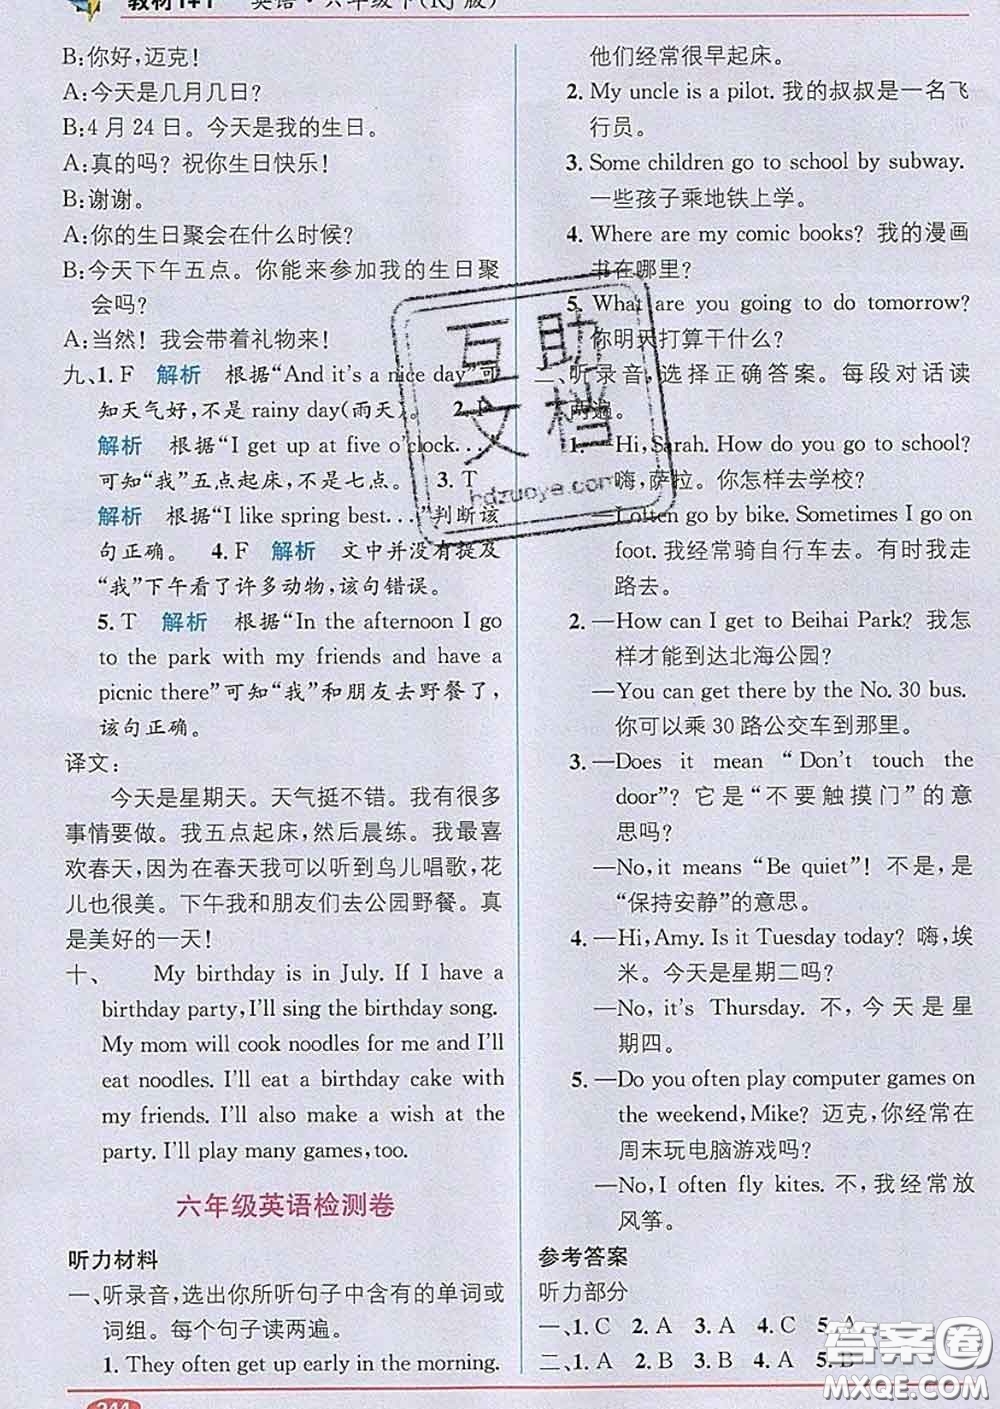 教材1+1 英语·六年级下(RJ版)
B:你好,迈克!
A:今天是几月几日?
B:4月24日。今天是我的生日。
A:真的吗?祝你生日快乐!
B:谢谢。
A:你的生日聚会在什么时候?
B:今天下午五点。你能来参加我的生日聚
会吗?
A:当然!我会带着礼物来!
九、1. F 解析 根据“And it's a nice day”可
知天气好,不是 rainy day(雨天)。 2. F
解析 根据“I get up at five o'clock...”
可知“我”五点起床,不是七点。 3. T
解析 根据“I like spring best...”判断该
句正确。 4. F 解析 文中并没有提及
“我”下午看了许多动物,该句错误。
5. T 解析 根据“In the afternoon I go
to the park with my friends and have a
picnic there”可知“我”和朋友去野餐了,
该句正确。
译文:
今天是星期天。天气挺不错。我有很多
事情要做。我五点起床,然后晨练。我最喜
欢春天,因为在春天我可以听到鸟儿唱歌,花
儿也很美。下午我和朋友们去公园野餐。真
是美好的一天!
十、 My birthday is in July. If I have a
birthday party, I'll sing the birthday song.
My mom will cook noodles for me and I'll
eat noodles. I'll eat a birthday cake with
my friends. I'll also make a wish at the
party. I'll play many games, too.
六年级英语检测卷
听力材料
一、听录音,选出你所听句子中含有的单词或
词组。每个句子读两遍。
1. They often get up early in the morning.
244
他们经常很早起床。
2. My uncle is a pilot. 我的叔叔是一名飞
行员。
3. Some children go to school by subway.
一些孩子乘地铁上学。
4. Where are my comic books? 我的漫画
书在哪里?
5. What are you going to do tomorrow?
你明天打算干什么?
二、听录音,选择正确答案。每段对话读
两遍。
1. —Hi, Sarah. How do you go to school?
嗨,萨拉。你怎样去学校?
—I often go by bike. Sometimes I go on
foot. 我经常骑自行车去。有时我走
路去。
2. —How can I get to Beihai Park? 我怎
样才能到达北海公园?
—You can get there by the No. 30 bus.
你可以乘30路公交车到那里。
3. —Does it mean “Don't touch the
door”? 它是“不要触摸门”的意
思吗?
—No, it means “Be quiet”! 不是,是
“保持安静”的意思。
4. —Hi, Amy. Is it Tuesday today? 嗨,埃
米。今天是星期二吗?
—No, it's Thursday. 不,今天是星
期四。
5. —Do you often play computer games on
the weekend, Mike? 迈克,你经常在
周末玩电脑游戏吗?
—No, I often fly kites. 不,我经常放
风筝。
参考答案
听力部分
一、1. C 2. A 3. A 4. C 5. A
二、1. A 2. B 3. B 4. A 5. B
互助
文档
hdzuoye.com
答案圈
MXQE.COM